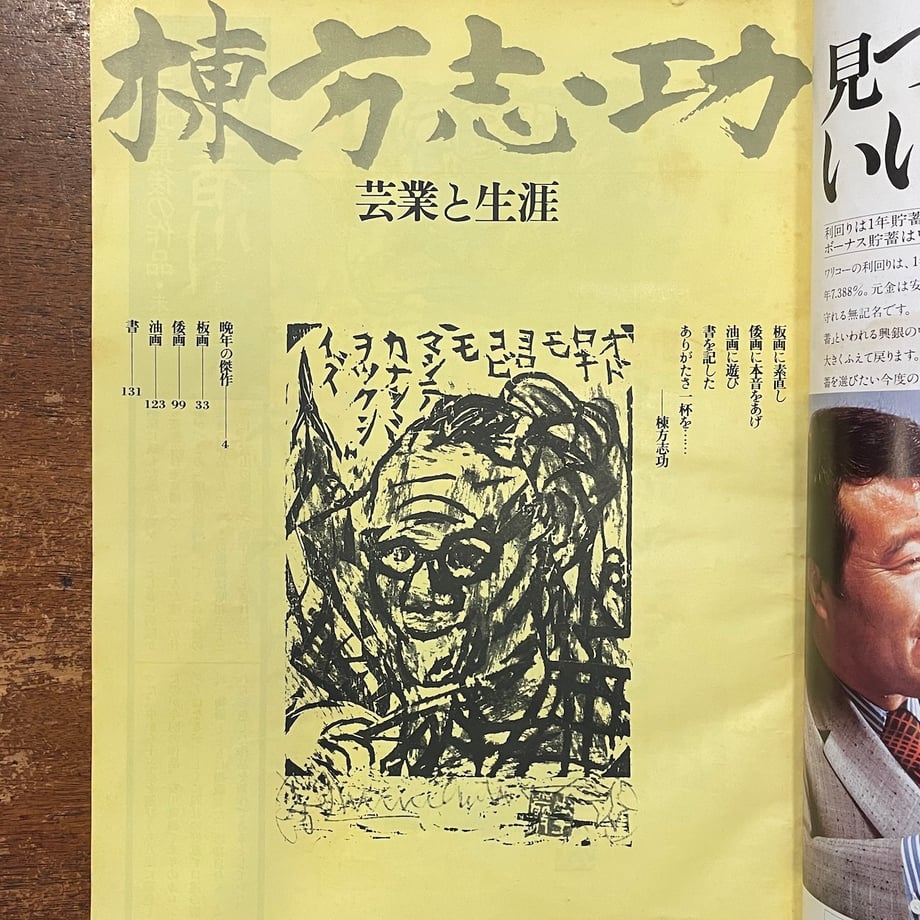 棟方志功
芸業と生涯
板画に素直し
倭画に本音をあげ
油画に遊び
書を記した
ありがたさ一杯を……
――棟方志功
オドロキ
モヨロコビ
モマシテ
カナシミ
ヲツクシ
晩年の傑作――4
板画――33
倭画――99
油画――123
書――131
見つ
いい
利回りは1年貯蓄
ボーナス貯蓄は
ワリコーの利回りは、1
年7.388%。元金は安
守れる無記名です。
蓄」といわれる興銀の
大きくふえて戻ります。
蓄を選びたい今度の